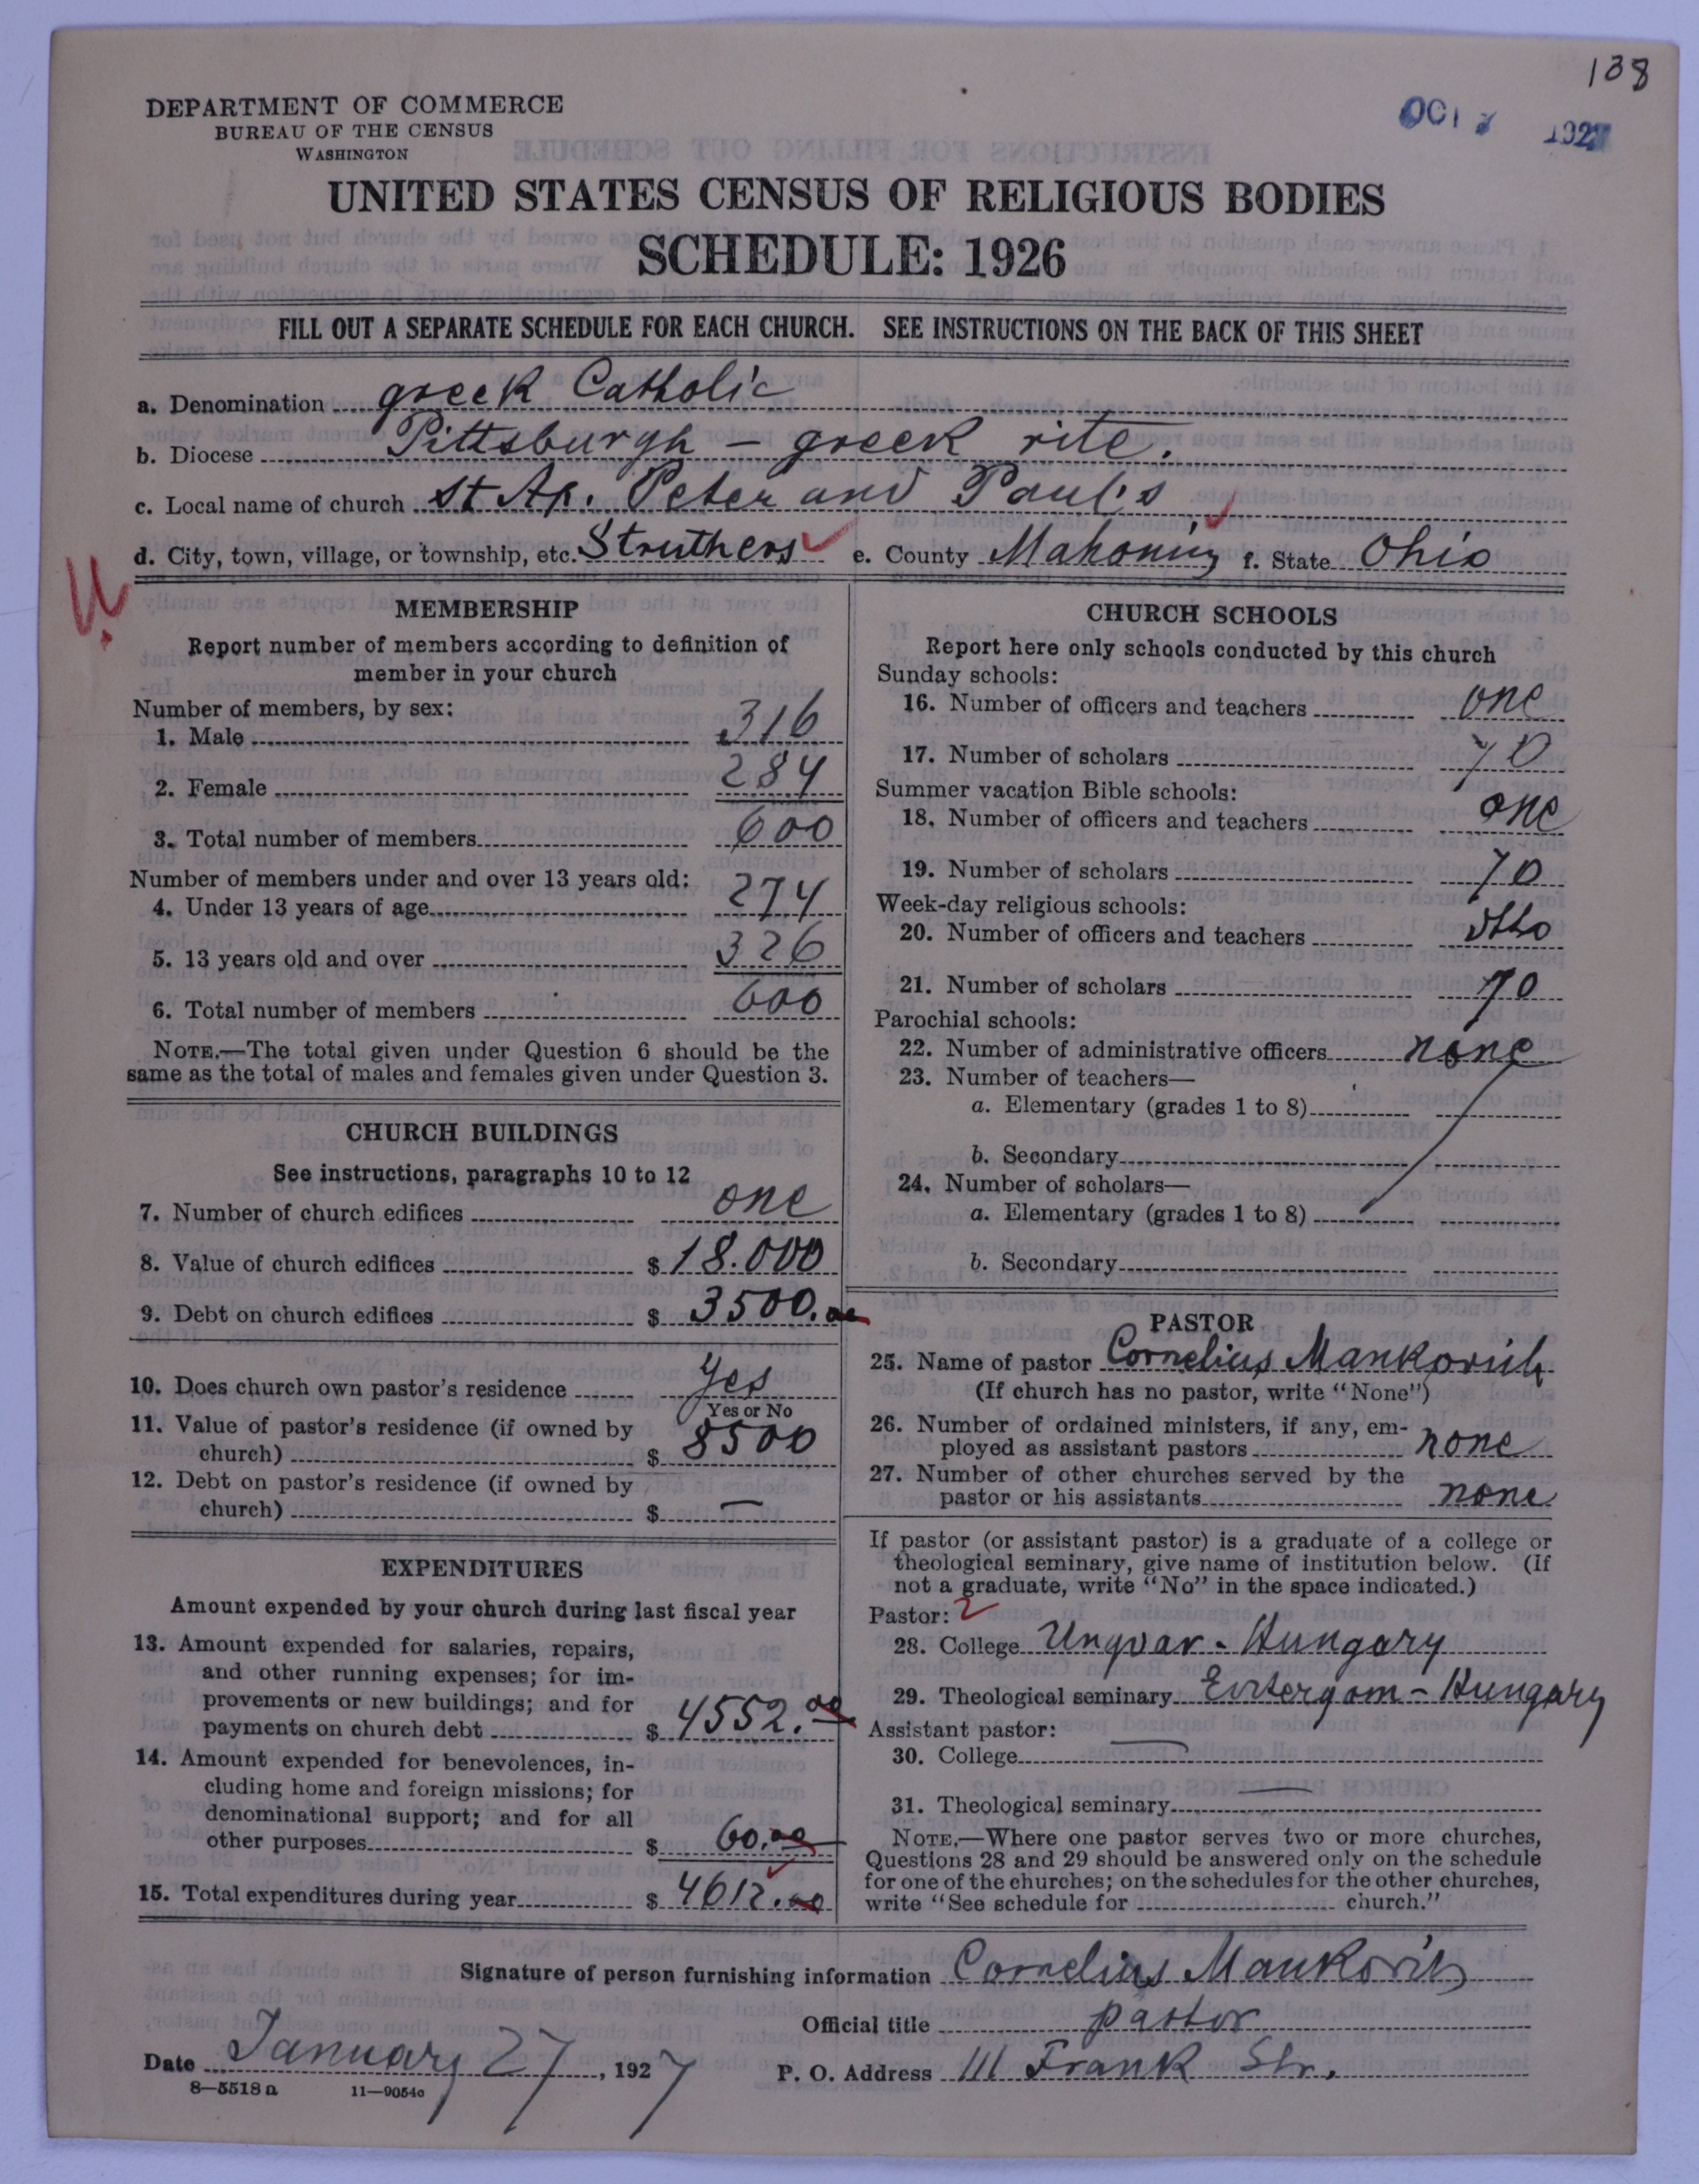 138
OCT 1927
DEPARTMENT OF COMMERCE
BUREAU OF THE CENSUS
WASHINGTON
UNITED STATES CENSUS OF RELIGIOUS BODIES
SCHEDULE: 1926
FILL OUT A SEPARATE SCHEDULE FOR EACH CHURCH. SEE INSTRUCTIONS ON THE BACK OF THIS SHEET
a. Denomination greek Catholic
b. Diocese Pittsburgh - greek rite.
c. Local name of church St Ap. Peter and Paul's
d. City, town, village, or township, etc. Struthers e. County Mahoning f. State Ohio
MEMBERSHIP
Report number of members according to definition of
member in your church
Number of members, by sex:
1. Male 316
2. Female 284
3. Total number of members 600
Number of members under and over 13 years old:
4. Under 13 years of age 274
5. 13 years old and over 326
6. Total number of members 600
NOTE.—The total given under Question 6 should be the
same as the total of males and females given under Question 3.
CHURCH BUILDINGS
See instructions, paragraphs 10 to 12
7. Number of church edifices one
8. Value of church edifices $ 18.000
9. Debt on church edifices $ 3500.00
10. Does church own pastor's residence yes
Yes or No
11. Value of pastor's residence (if owned by
church) $ 8500
12. Debt on pastor's residence (if owned by
church) $ —
EXPENDITURES
Amount expended by your church during last fiscal year
13. Amount expended for salaries, repairs,
and other running expenses; for im-
provements or new buildings; and for
payments on church debt $ 4552.00
14. Amount expended for benevolences, in-
cluding home and foreign missions; for
denominational support; and for all
other purposes $ 60.00
15. Total expenditures during year $ 4612.00
CHURCH SCHOOLS
Report here only schools conducted by this church
Sunday schools:
16. Number of officers and teachers one
17. Number of scholars 70
Summer vacation Bible schools:
18. Number of officers and teachers one
19. Number of scholars 70
Week-day religious schools:
20. Number of officers and teachers
21. Number of scholars 70
Parochial schools:
22. Number of administrative officers none
23. Number of teachers—
a. Elementary (grades 1 to 8)
b. Secondary
24. Number of scholars—
a. Elementary (grades 1 to 8)
b. Secondary
PASTOR
25. Name of pastor Cornelius Mankovich
(If church has no pastor, write "None")
26. Number of ordained ministers, if any, em-
ployed as assistant pastors none
27. Number of other churches served by the
pastor or his assistants none
If pastor (or assistant pastor) is a graduate of a college or
theological seminary, give name of institution below. (If
not a graduate, write "No" in the space indicated.)
Pastor: 2
28. College Ungvar - Hungary
29. Theological seminary Eistergom - Hungary
Assistant pastor:
30. College —
31. Theological seminary —
NOTE.—Where one pastor serves two or more churches,
Questions 28 and 29 should be answered only on the schedule
for one of the churches; on the schedules for the other churches,
write "See schedule for church."
Signature of person furnishing information Cornelius Mankovich
Official title pastor
Date January 27, 1927 P. O. Address 111 Frank Str.
8—5518a 11—9054c